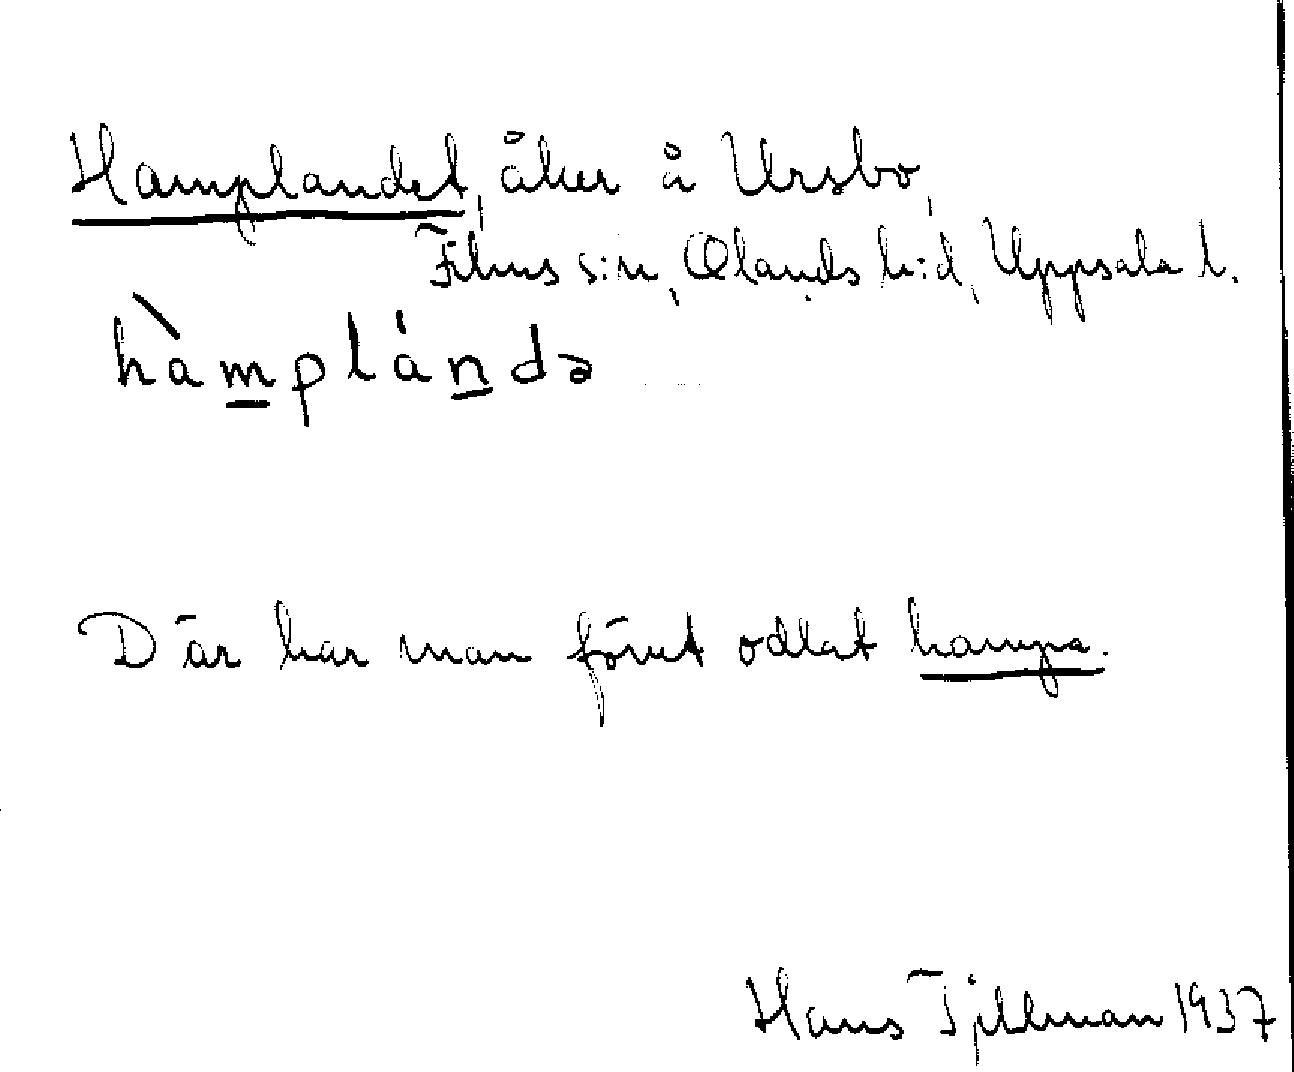 Hamplandet, åker å Ursbo,
Films s:n, Olands h:d, Uppsala l.
hàmplándə
Där har man förut odlat hampa.
Hans 1937